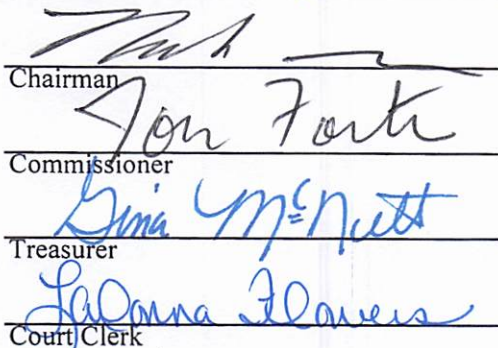 Chairman
Jon Forte
Commissioner
Gina McNutt
Treasurer
LaDonna Flowers
Court Clerk